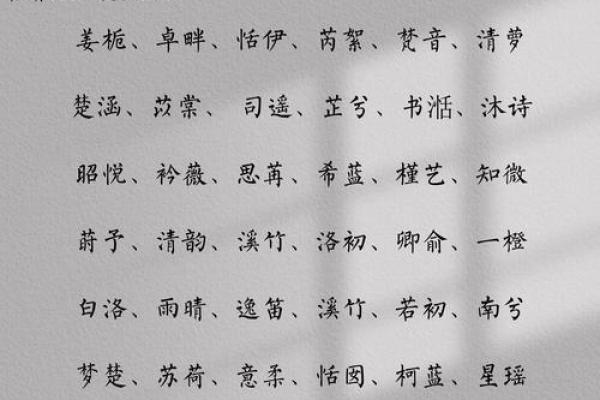 姜栀、卓畔、恬伊、芮絮、梵音、清萝
楚涵、苡棠、司遥、芷兮、书湉、沐诗
昭悦、衿薇、思苒、希蓝、槿艺、知微
莳予、清韵、溪竹、洛初、卿俞、一橙
白洛、雨晴、逸笛、溪竹、若初、南兮
梦楚、苏荷、意柔、恬囡、柯蓝、星瑶